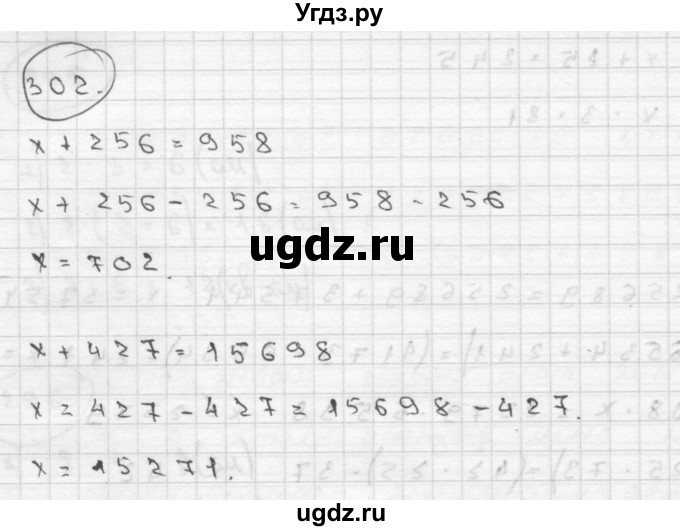 Угдз.ру
302.
x + 256 = 958
x + 256 - 256 = 958 - 256
ugdz.ru
x = 702.
x + 427 = 15698
x = 427 - 427 = 15698 - 427.
x = 15271.
ugdz.ru